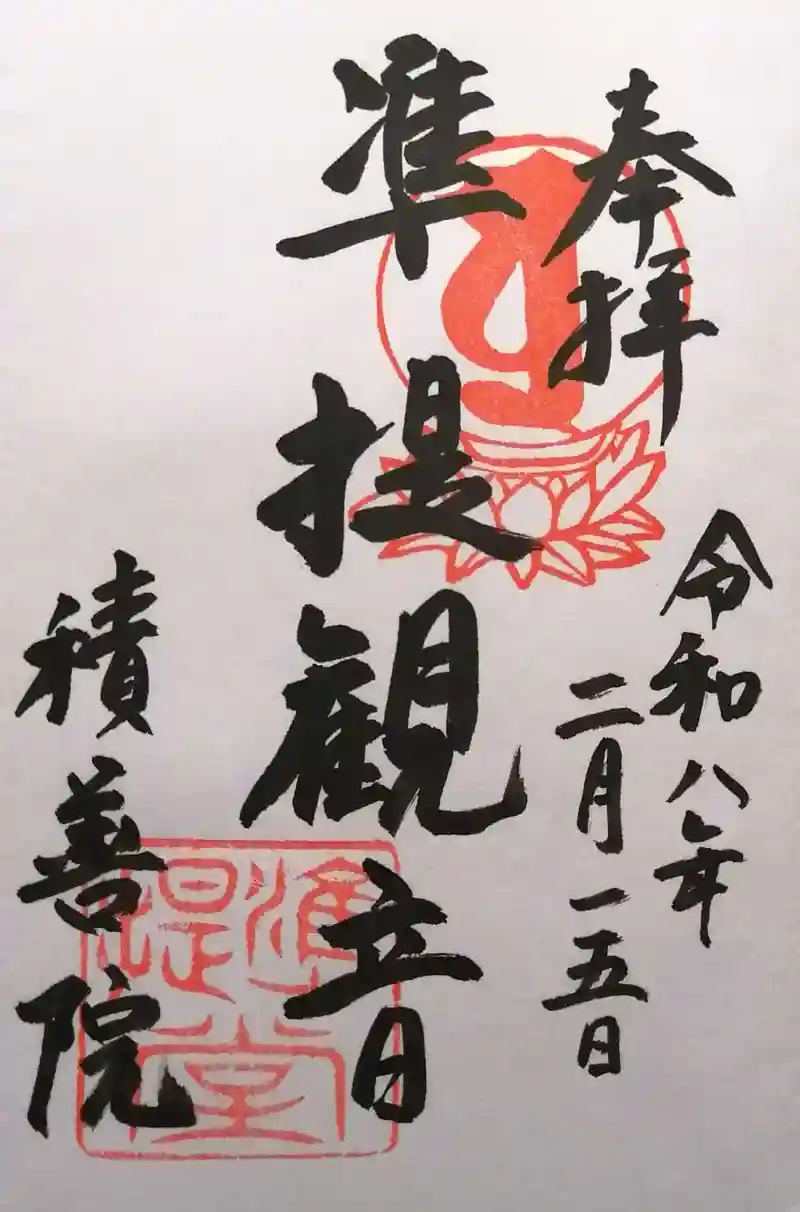 奉拝
令和八年
二月一五日
准提観音
積善院
準提堂